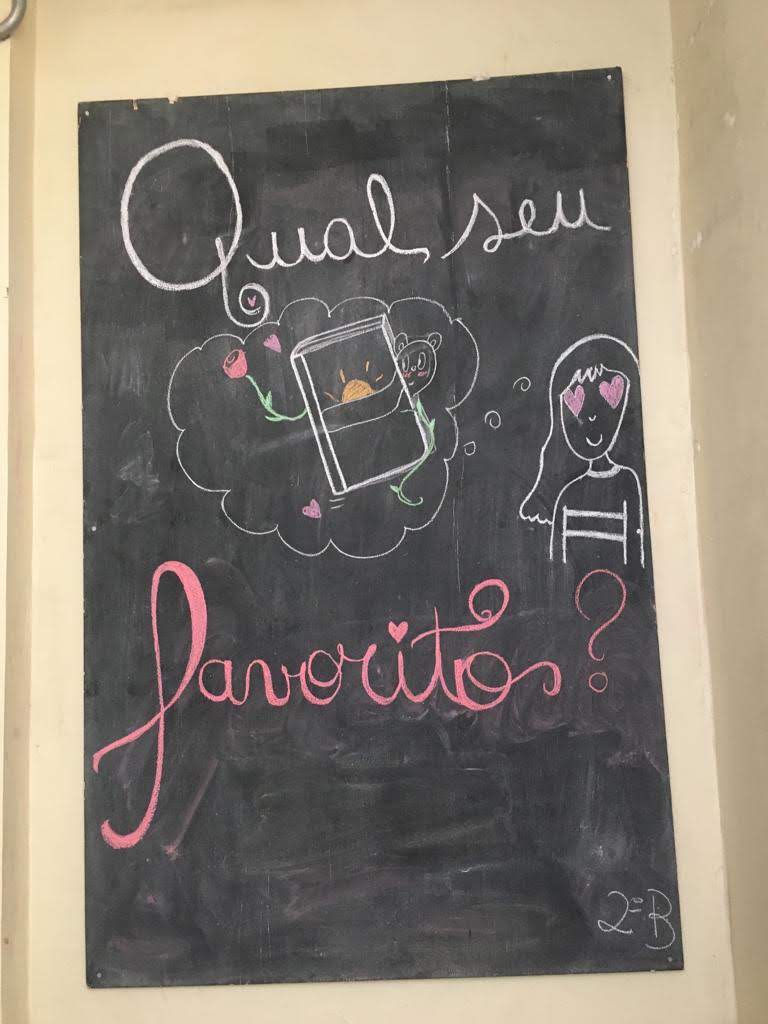 Qual seu
favoritos?
2º B